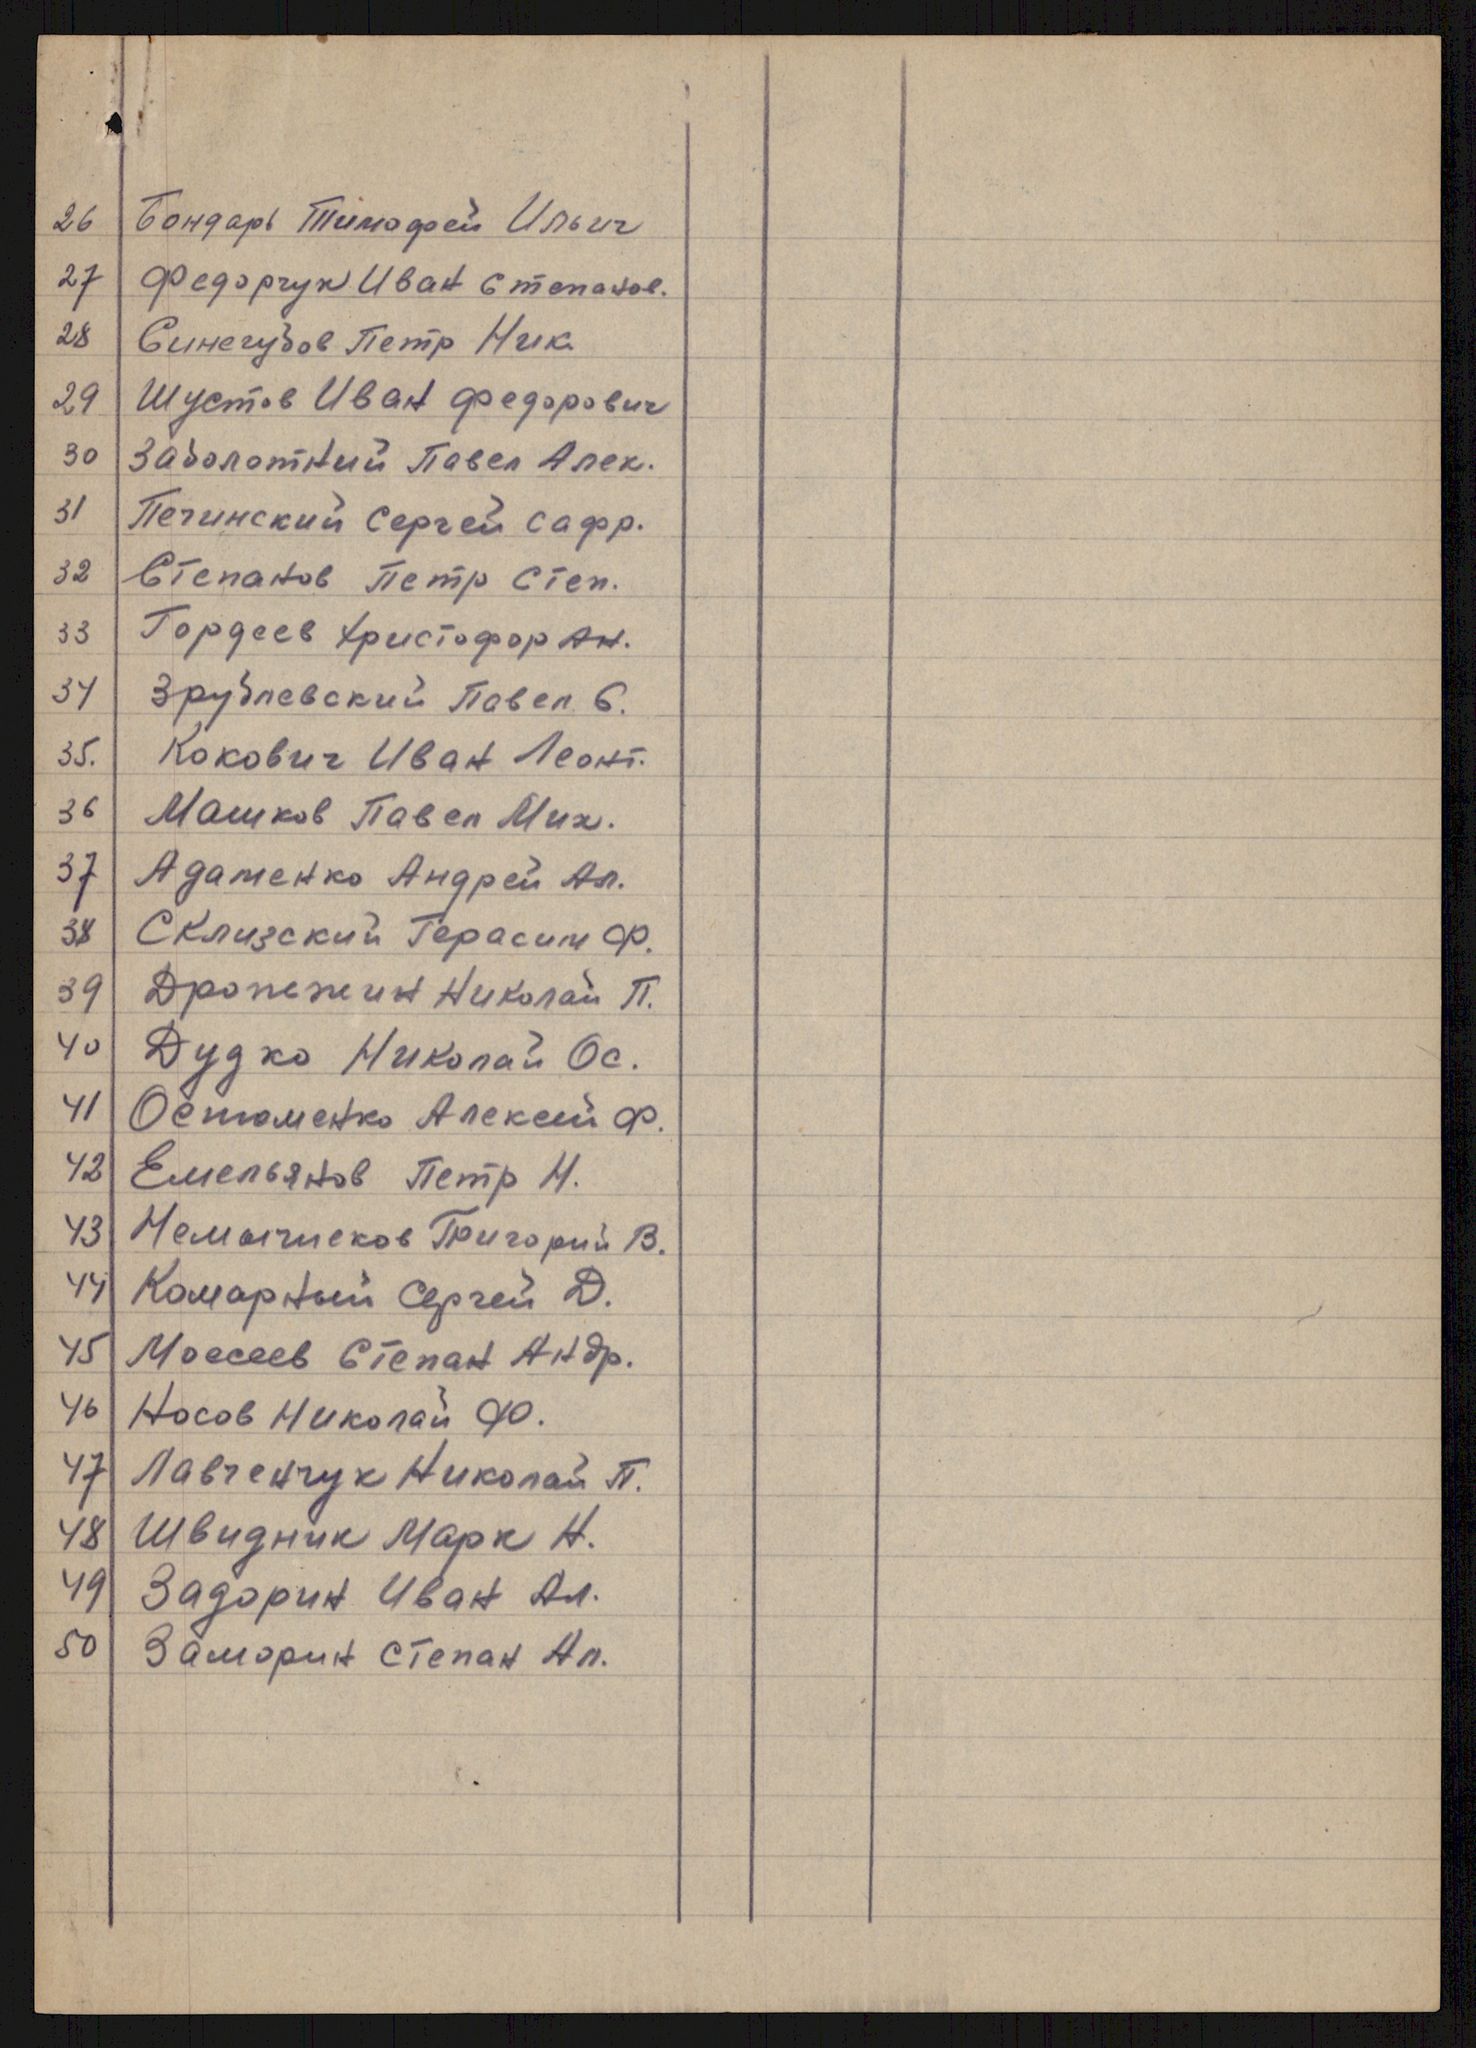 26 Бондарь Тимофей Ильич
27 Федорчук Иван Степанов.
28 Синегубов Петр Ник.
29 Шустов Иван Федорович
30 Заболотний Павел Алек.
31 Печинский Сергей Сафр.
32 Степанов Петр Степ.
33 Гордеев Христофор Ан.
34 Зрублевский Павел С.
35. Кокович Иван Леонт.
36 Машков Павел Мих.
37 Адаменко Андрей Ал.
38 Склизский Герасим Ф.
39 Дрожежин Николай П.
40 Дудко Николай Ос.
41 Остоменко Алексей Ф.
42 Емельянов Петр Н.
43 Григорий В.
44 Комарный Сергей Д.
45 Моесеев Степан Андр.
46 Носов Николай Ф.
47 Лавченчук Николай П.
48 Швидник Марк Н.
49 Задорин Иван Ал.
50 Заморин Степан Ал.